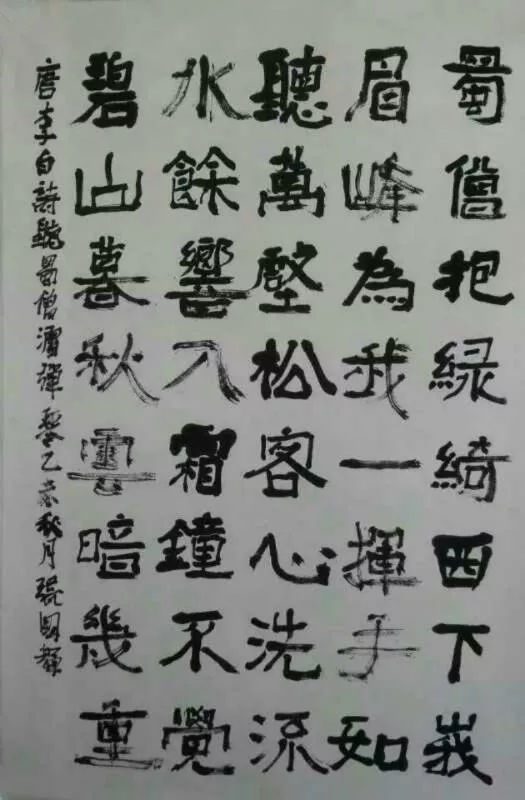 蜀僧抱綠綺西下峩
眉峰為我一揮手如
聽萬壑松客心洗流
水餘響入霜鐘不覺
碧山暮秋雲暗幾重
唐李白詩聽蜀僧濬彈琴乙亥秋月張國輝